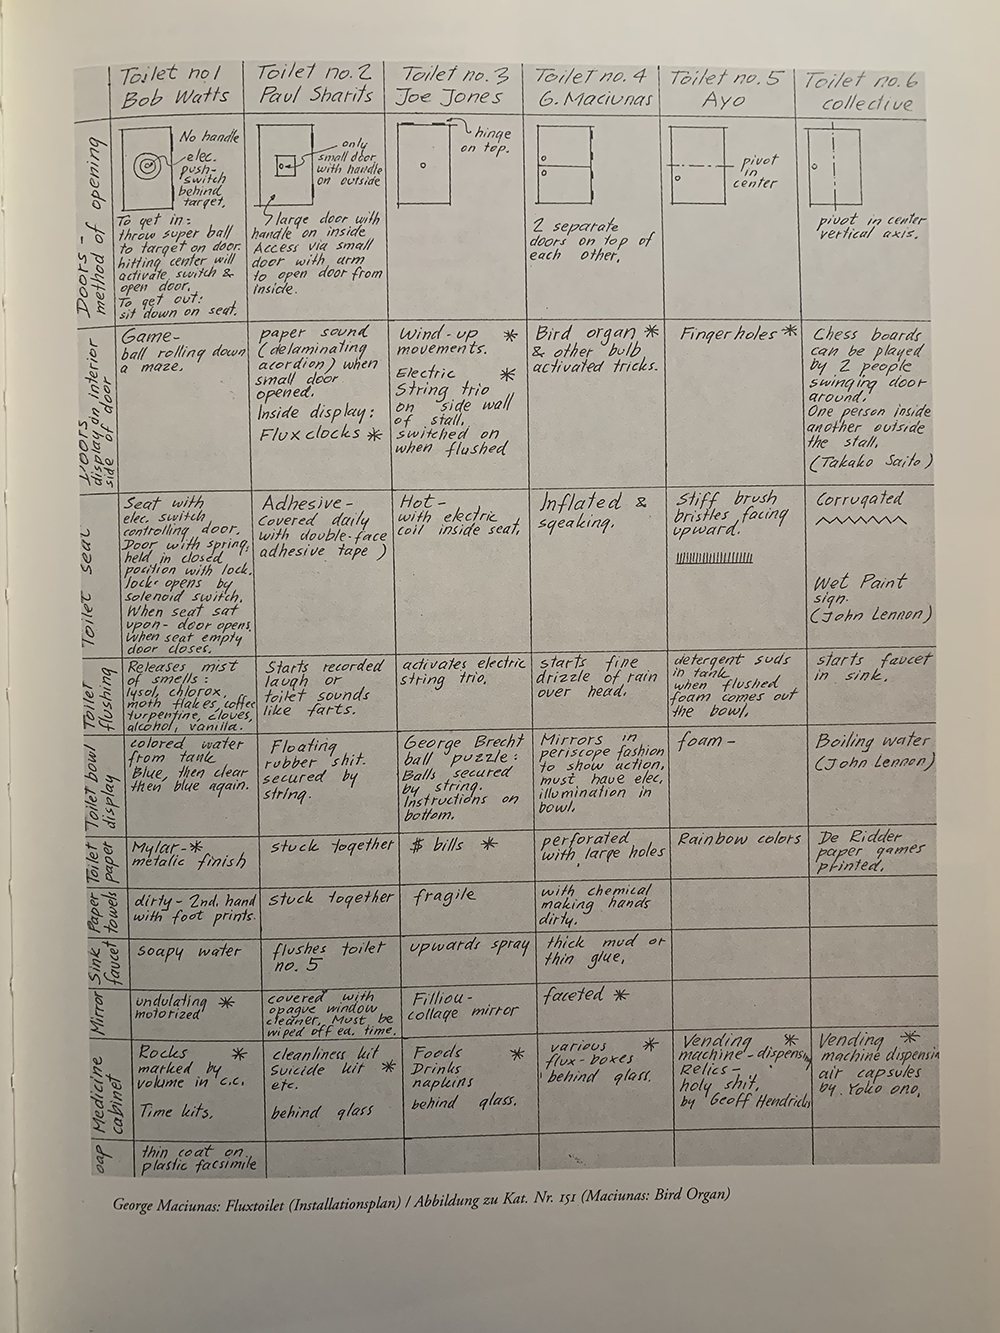 Toilet no1
Bob Watts
Toilet no. 2
Paul Sharits
Toilet no. 3
Joe Jones
Toilet no. 4
G. Maciunas
Toilet no. 5
Ayo
Toilet no. 6
collective
Doors -
method of opening
No handle
elec.
push-
switch
behind
target.
To get in:
throw super ball
to target on door.
hitting center will
activate switch &
open door.
To get out:
sit down on seat.
only
small door
with handle
on outside
large door with
handle on inside
Access via small
door with arm
to open door from
inside.
hinge
on top.
2 separate
doors on top of
each other.
pivot
in
center
pivot in center
vertical axis.
Doors
display on interior
side of door
Game-
ball rolling down
a maze.
paper sound
(delaminating
acordion) when
small door
opened.
Inside display:
Flux clocks *
Wind-up *
movements.
Electric *
String trio
on side wall
of stall,
switched on
when flushed
Bird organ *
& other bulb
activated tricks.
Finger holes *
Chess boards
can be played
by 2 people
swinging door
around.
One person inside
another outside
the stall.
(Takako Saito)
Toilet seat
Seat with
elec. switch
controlling door.
Door with spring,
held in closed
position with lock.
lock opens by
solenoid switch.
When seat sat
upon - door opens.
When seat empty
door closes.
Adhesive -
covered daily
with double-face
adhesive tape )
Hot -
with electric
coil inside seat.
Inflated &
sqeaking.
Stiff brush
bristles facing
upward.
Corrugated
Wet Paint
sign.
(John Lennon)
Toilet
flushing
Releases mist
of smells:
lysol, chlorox,
moth flakes, coffee
turpentine, cloves,
alcohol, vanilla.
Starts recorded
laugh or
toilet sounds
like farts.
activates electric
string trio.
starts fine
drizzle of rain
over head.
detergent suds
in tank
when flushed
foam comes out
the bowl.
starts faucet
in sink.
Toilet bowl
display
colored water
from tank
Blue, then clear
then blue again.
Floating
rubber shit.
secured by
string.
George Brecht
ball puzzle:
Balls secured
by string.
Instructions on
bottom.
Mirrors in
periscope fashion
to show action,
must have elec.
illumination in
bowl.
foam -
Boiling water
(John Lennon)
Toilet
paper
Mylar - *
metalic finish
stuck together
$ bills *
perforated
with large holes
Rainbow colors
De Ridder
paper games
printed.
Paper
towels
dirty - 2nd. hand
with foot prints.
stuck together
fragile
with chemical
making hands
dirty.
Sink
faucet
soapy water
flushes toilet
no. 5
upwards spray
thick mud or
thin glue.
Mirror
undulating *
motorized
covered with
opaque window
cleaner. Must be
wiped off ea. time.
Filliou -
collage mirror
faceted *
Medicine
cabinet
Rocks *
marked by
volume in c.c.
Time kits.
cleanliness kit
suicide kit *
etc.
behind glass
Foods *
Drinks
napkins
behind glass.
various *
flux-boxes
behind glass.
Vending *
machine - dispensin
Relics -
holy shit,
by Geoff Hendricks
Vending *
machine dispensin
air capsules
by. Yoko ono.
oap
thin coat on
plastic facsimile
George Maciunas: Fluxtoilet (Installationsplan) / Abbildung zu Kat. Nr. 151 (Maciunas: Bird Organ)